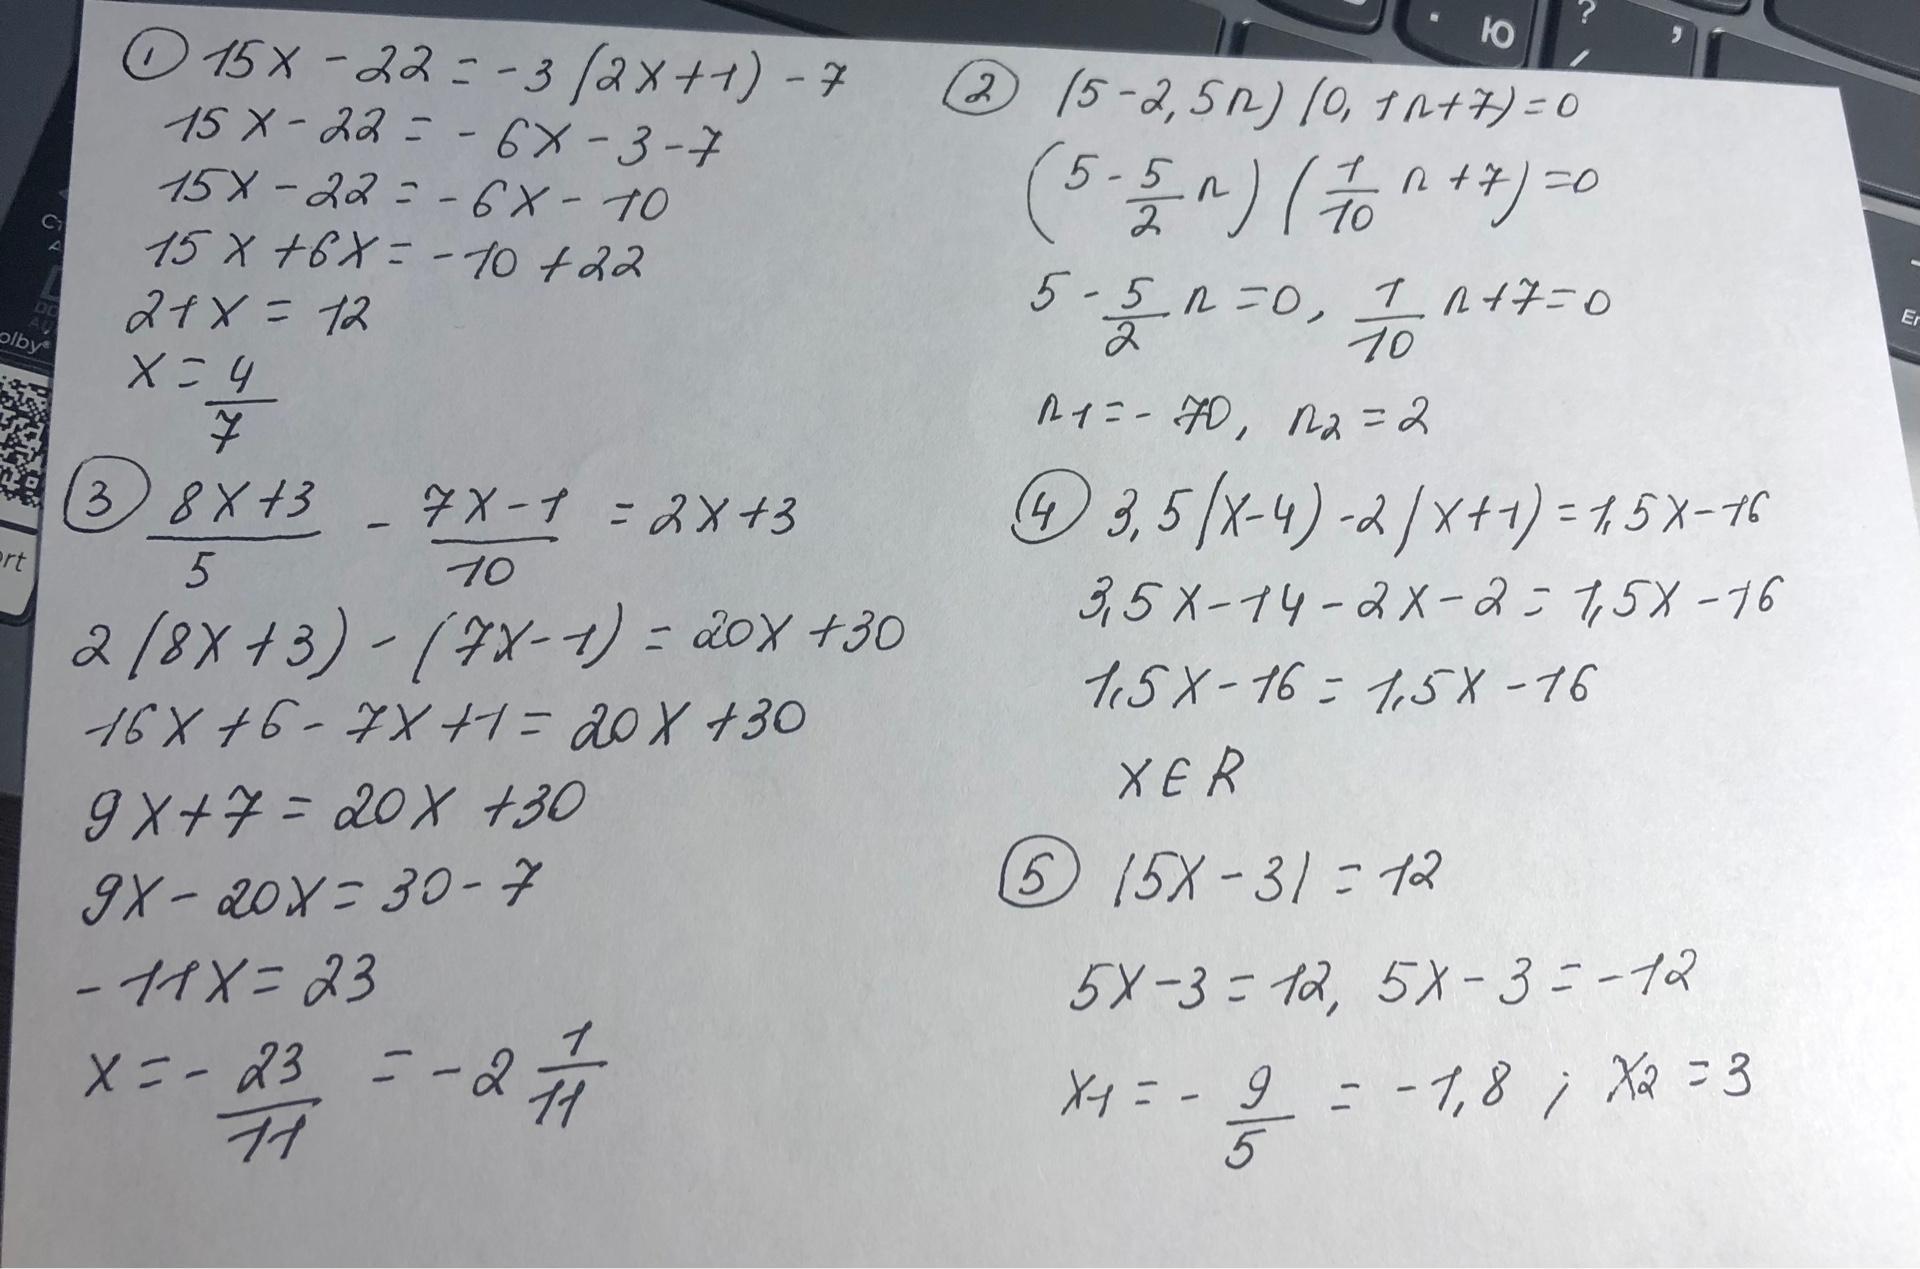 ① 15x - 22 = -3(2x+1) - 7
15x - 22 = -6x - 3 - 7
15x - 22 = -6x - 10
15x + 6x = -10 + 22
21x = 12
x = 4/7
② (5 - 2,5n)(0,1n+7) = 0
(5 - 5/2 n)(1/10 n + 7) = 0
5 - 5/2 n = 0, 1/10 n + 7 = 0
n1 = -70, n2 = 2
③ 8x+3/5 - 7x-1/10 = 2x+3
2(8x+3) - (7x-1) = 20x + 30
16x + 6 - 7x + 1 = 20x + 30
9x + 7 = 20x + 30
9x - 20x = 30 - 7
-11x = 23
x = - 23/11 = -2 1/11
④ 3,5(x-4) - 2(x+1) = 1,5x - 16
3,5x - 14 - 2x - 2 = 1,5x - 16
1,5x - 16 = 1,5x - 16
x ∈ R
⑤ |5x - 3| = 12
5x - 3 = 12, 5x - 3 = -12
x1 = - 9/5 = -1,8 ; x2 = 3
Ю
?
/
,
olby
rt
En